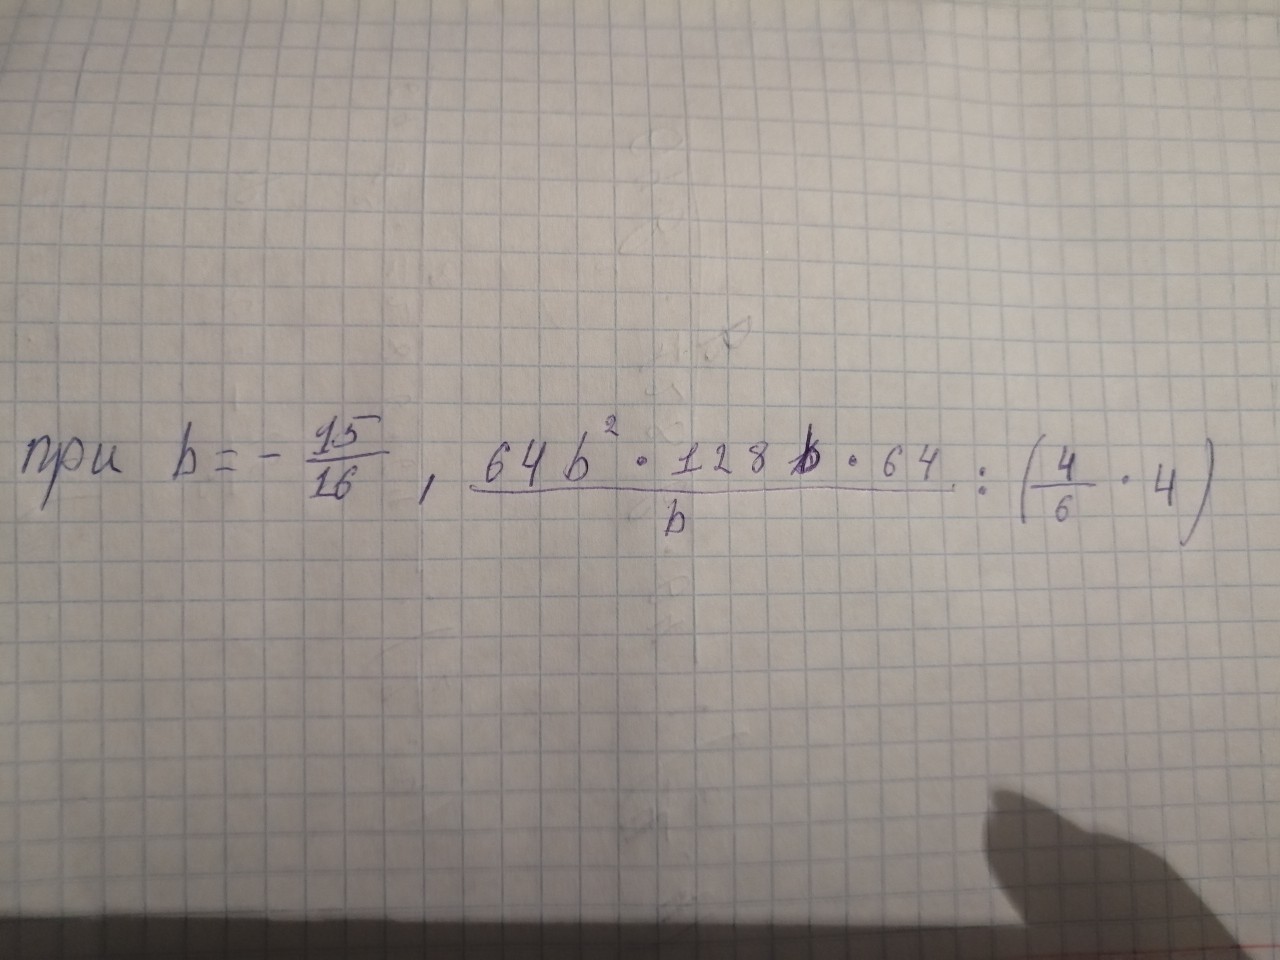 при b = - 15/16 , 64b² · 128b · 64 / b : (4/6 · 4)